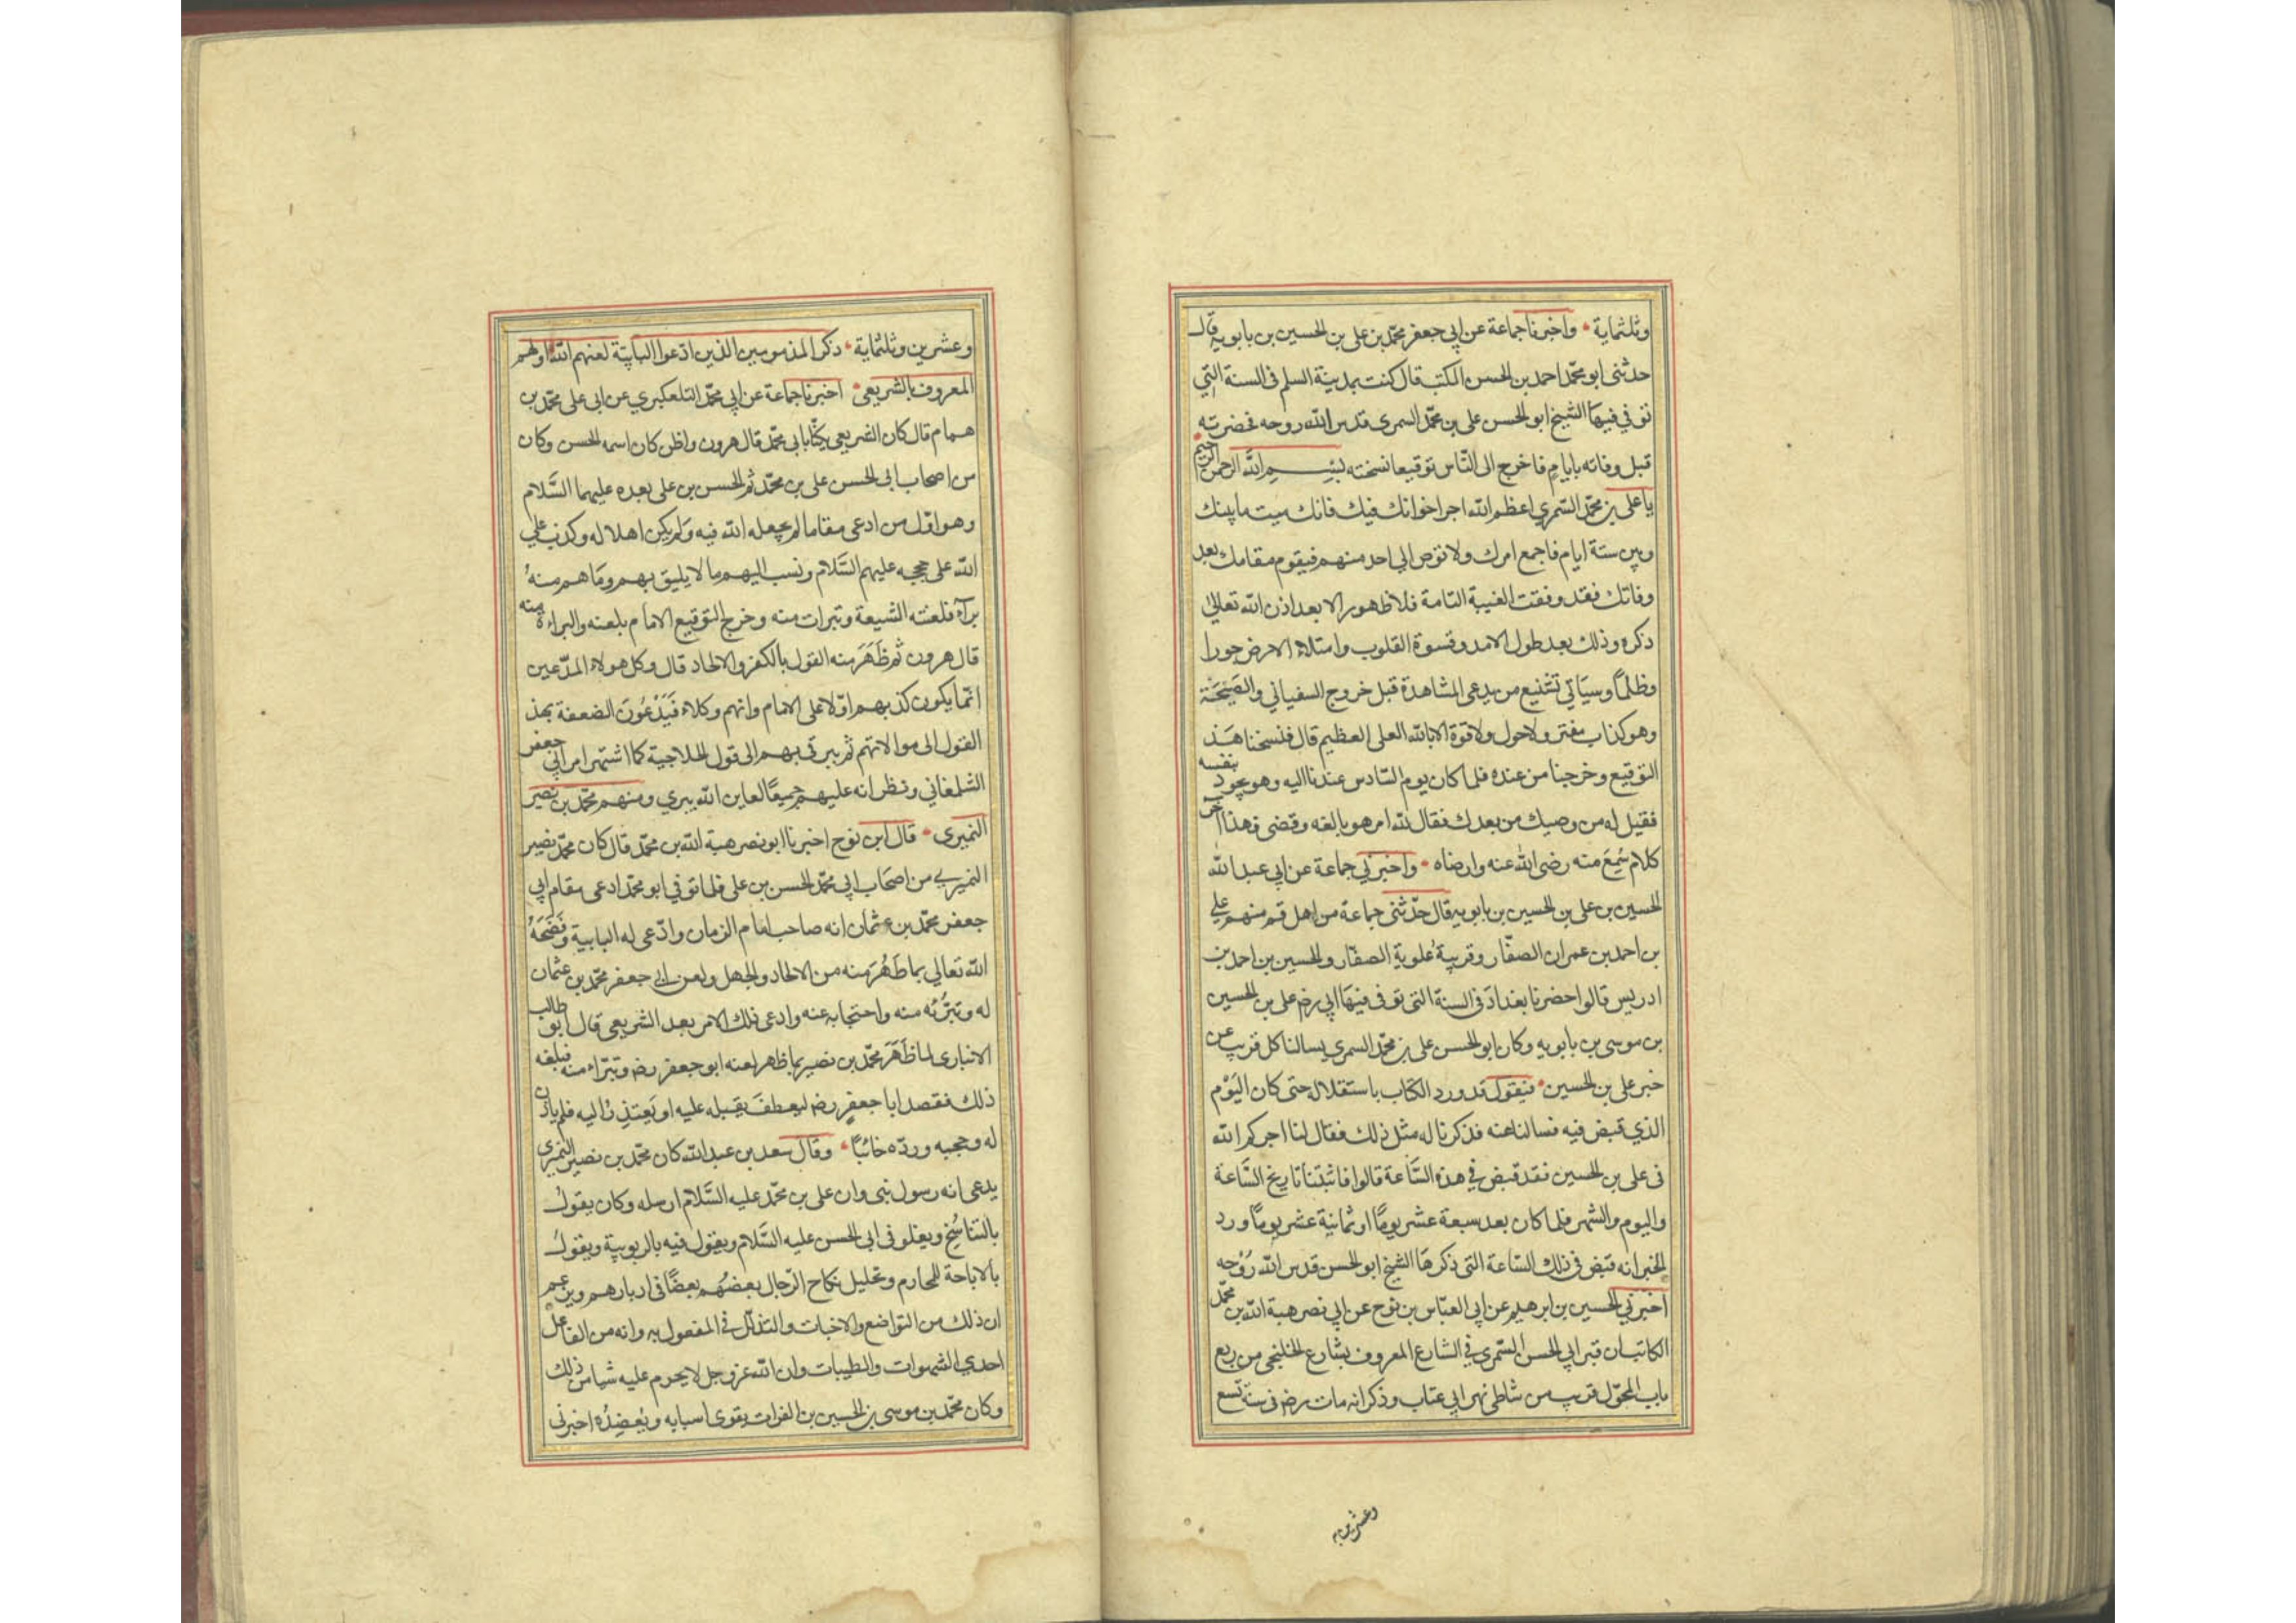 وثلثماية • واخبرنا جماعة عن ابي جعفر محمد بن علي بن الحسين بن بابويه قال
حدثني ابو محمد احمد بن الحسن المكتب قال كنت بمدينة السلم في السنة التي
توفي فيها الشيخ ابو الحسن علي بن محمد السمري قدس الله روحه فحضرته
قبل وفاته بايام فاخرج الى الناس توقيعا نسخته بسم الله الرحمن الرحيم
يا علي بن محمد السمري اعظم الله اجر اخوانك فيك فانك ميت ما بينك
وبين ستة ايام فاجمع امرك ولا توص الي احد منهم فيقوم مقامك بعد
وفاتك فقد وقعت الغيبة التامة فلا ظهور الا بعد اذن الله تعالى
ذكره وذلك بعد طول الامد وقسوة القلوب وامتلاء الارض جورا
وظلما وسياتي من يدعي المشاهدة قبل خروج السفياني والصيحة
وهو كذاب مفتر ولا حول ولا قوة الا بالله العلي العظيم قال فنسخنا هذا
التوقيع وخرجنا من عنده فلما كان يوم السادس عدنا اليه وهو يجود بنفسه
فقيل له من وصيك من بعدك فقال لله امر هو بالغه وقضى فهذا اخر
كلام سُمِعَ منه رضي الله عنه وارضاه • واخبرني جماعة عن ابي عبد الله
الحسين بن علي بن الحسين بن بابويه قال حدثني جماعة من اهل قم منهم علي
بن احمد بن عمران الصفار وقريبه علوية الصفار والحسين بن احمد بن
ادريس قالوا حضرنا بغداد في السنة التي توفي فيها ابي رضـ علي بن الحسين
بن موسى بن بابويه وكان ابو الحسن علي بن محمد السمري يسالنا كل قريب عن
خبر علي بن الحسين • فنقول قد ورد الكتاب باستقلاله حتى كان اليوم
الذي قبض فيه فسالنا عنه فذكرنا له مثل ذلك فقال لنا اجركم الله
في علي بن الحسين فقد قبض في هذه الساعة قالوا فاثبتنا تاريخ الساعة
واليوم والشهر فلما كان بعد سبعة عشر يومًا او ثمانية عشر يومًا ورد
الخبر انه قبض في ذلك الساعة التي ذكرها الشيخ ابو الحسن قدس الله روحه
اخبرني الحسين بن ابرهيم عن ابي العباس بن نوح عن ابي نصر هبة الله بن محمد
الكاتب ان قبر ابي الحسن السمري في الشارع المعروف بشارع الخلنجي من ربع
باب المحول قريب من شاطئ نهر ابي عتاب وذكر انه مات رضـ في سنة تسع
وعشرين
وعشرين وثلثماية • ذكر المذمومين الذين ادعوا البابية لعنهم الله اولهم
المعروف بالشريعي • اخبرنا جماعة عن ابي محمد التلعكبري عن ابي علي محمد بن
همام قال كان الشريعي يكنا بابي محمد قال هرون واظن كان اسمه الحسن وكان
من اصحاب ابي الحسن علي بن محمد ثم الحسن بن علي بعده عليهما السلام
وهو اول من ادعى مقاما لم يجعله الله فيه ولم يكن اهلا له وكذب علي
الله على حججه عليهم السلام ونسب اليهم ما لا يليق بهم وما هم منه
براء فلعنته الشيعة وتبرات منه وخرج التوقيع الامام بلعنه والبراءة منه
قال هرون ثم ظَهَرَ منه القول بالكفر والالحاد قال وكل هولاء المدعين
انما يكون كذبهم اولا على الامام وانهم وكلاء فَيَدْعُونَ الضعفة بهذ
القول الى موالاتهم ثم يترقى بهم الى قول الحلاجية كما اشتهر من ابي جعفر
الشلمغاني ونظرانه عليهم جميعًا لعاين الله يبري ومنهم محمد بن نصير
النميري • قال ابن نوح اخبرنا ابو نصر هبة الله بن محمد قال كان محمد نصير
النميري من اصحاب ابي محمد الحسن بن علي فلما توفي ابو محمد ادعى مقام ابي
جعفر محمد بن عثمان انه صاحب امام الزمان وادعى له البابية وفَضَحَهُ
الله تعالي بما ظَهَرَ منه من الالحاد والجهل ولعن ابي جعفر محمد بن عثمان
له وتبرُّئه منه واحتجابه عنه وادعى ذلك الامر بعد الشريعي قال ابو طالب
الانباري لما ظَهَرَ محمد بن نصير بما ظهر لعنه ابو جعفر رضـ وتبراء منه فبلغه
ذلك فقصد ابا جعفر رضـ ليعطف بقلبه عليه او يَعتذر اليه فلم ياذن
له وحجبه وردّه خائبًا • وقال سعد بن عبد الله كان محمد بن نصير النميري
يدعى انه رسول نبي وان علي بن محمد عليه السلام ارسله وكان يقول
بالتناسُخ ويغلو في ابي الحسن عليه السلام ويقول فيه بالربوبية ويقول
بالاباحة للمحارم وتحليل نكاح الرجال بعضهُم بعضًا في ادبارهم ويزعم
ان ذلك من التواضع والاخبات والتذلّل في المفعول به وانه من الفاعل
احدي الشهوات والطيبات وان الله عز وجل لا يحرم عليه شيا من ذلك
وكان محمد بن موسى بن الحسين بن الفرات يقوى اسبابه ويُعضدُه اخبرني